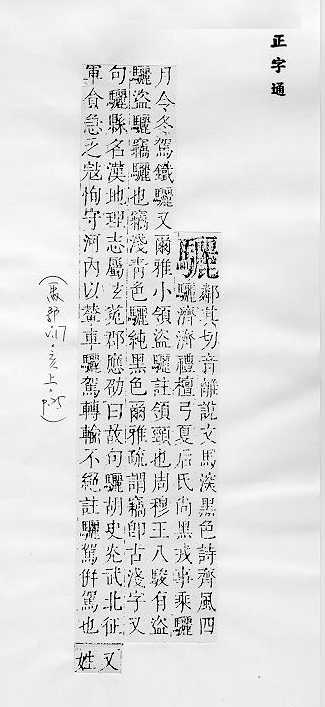 正字通
驪
鄰其切音離說文馬深黑色詩齊風四
驪濟濟禮檀弓夏后氏尚黑戎事乘驪
月令冬駕鐵驪又爾雅小領盜驪註領頸也周穆王八駿有盜
驪盜驪竊驪也竊淺青色驪純黑色爾雅疏謂竊卽古淺字又
句驪縣名漢地理志屬玄菟郡應劭曰故句驪胡史炎武北征
軍食急乏寇恂守河內以輦車驪駕轉輸不絕註驪駕倂駕也
又
姓